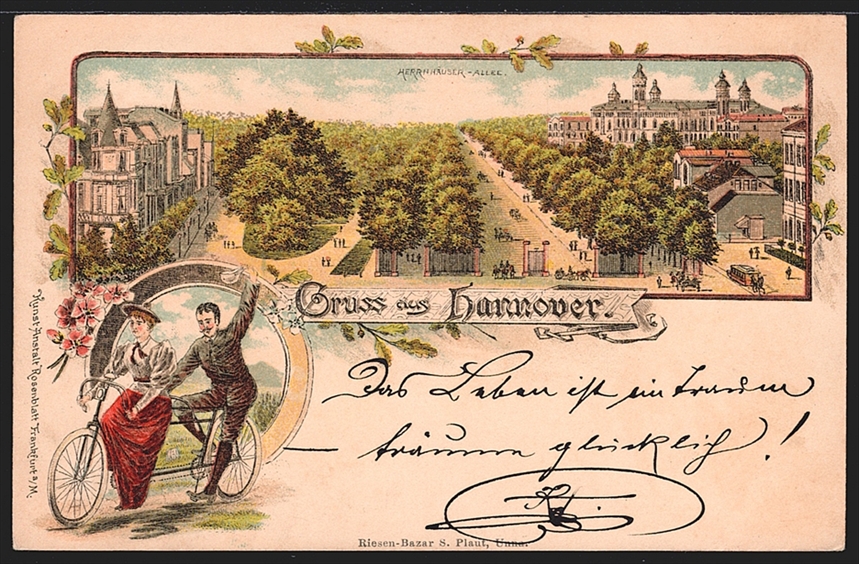 HERRNHÄUSER-ALLEE.
Gruss aus Hannover.
Das Leben ist ein Traum
— träume glücklich!
Kunst-Anstalt Rosenblatt Frankfurt a/M.
Riesen-Bazar S. Plaut, Unna.